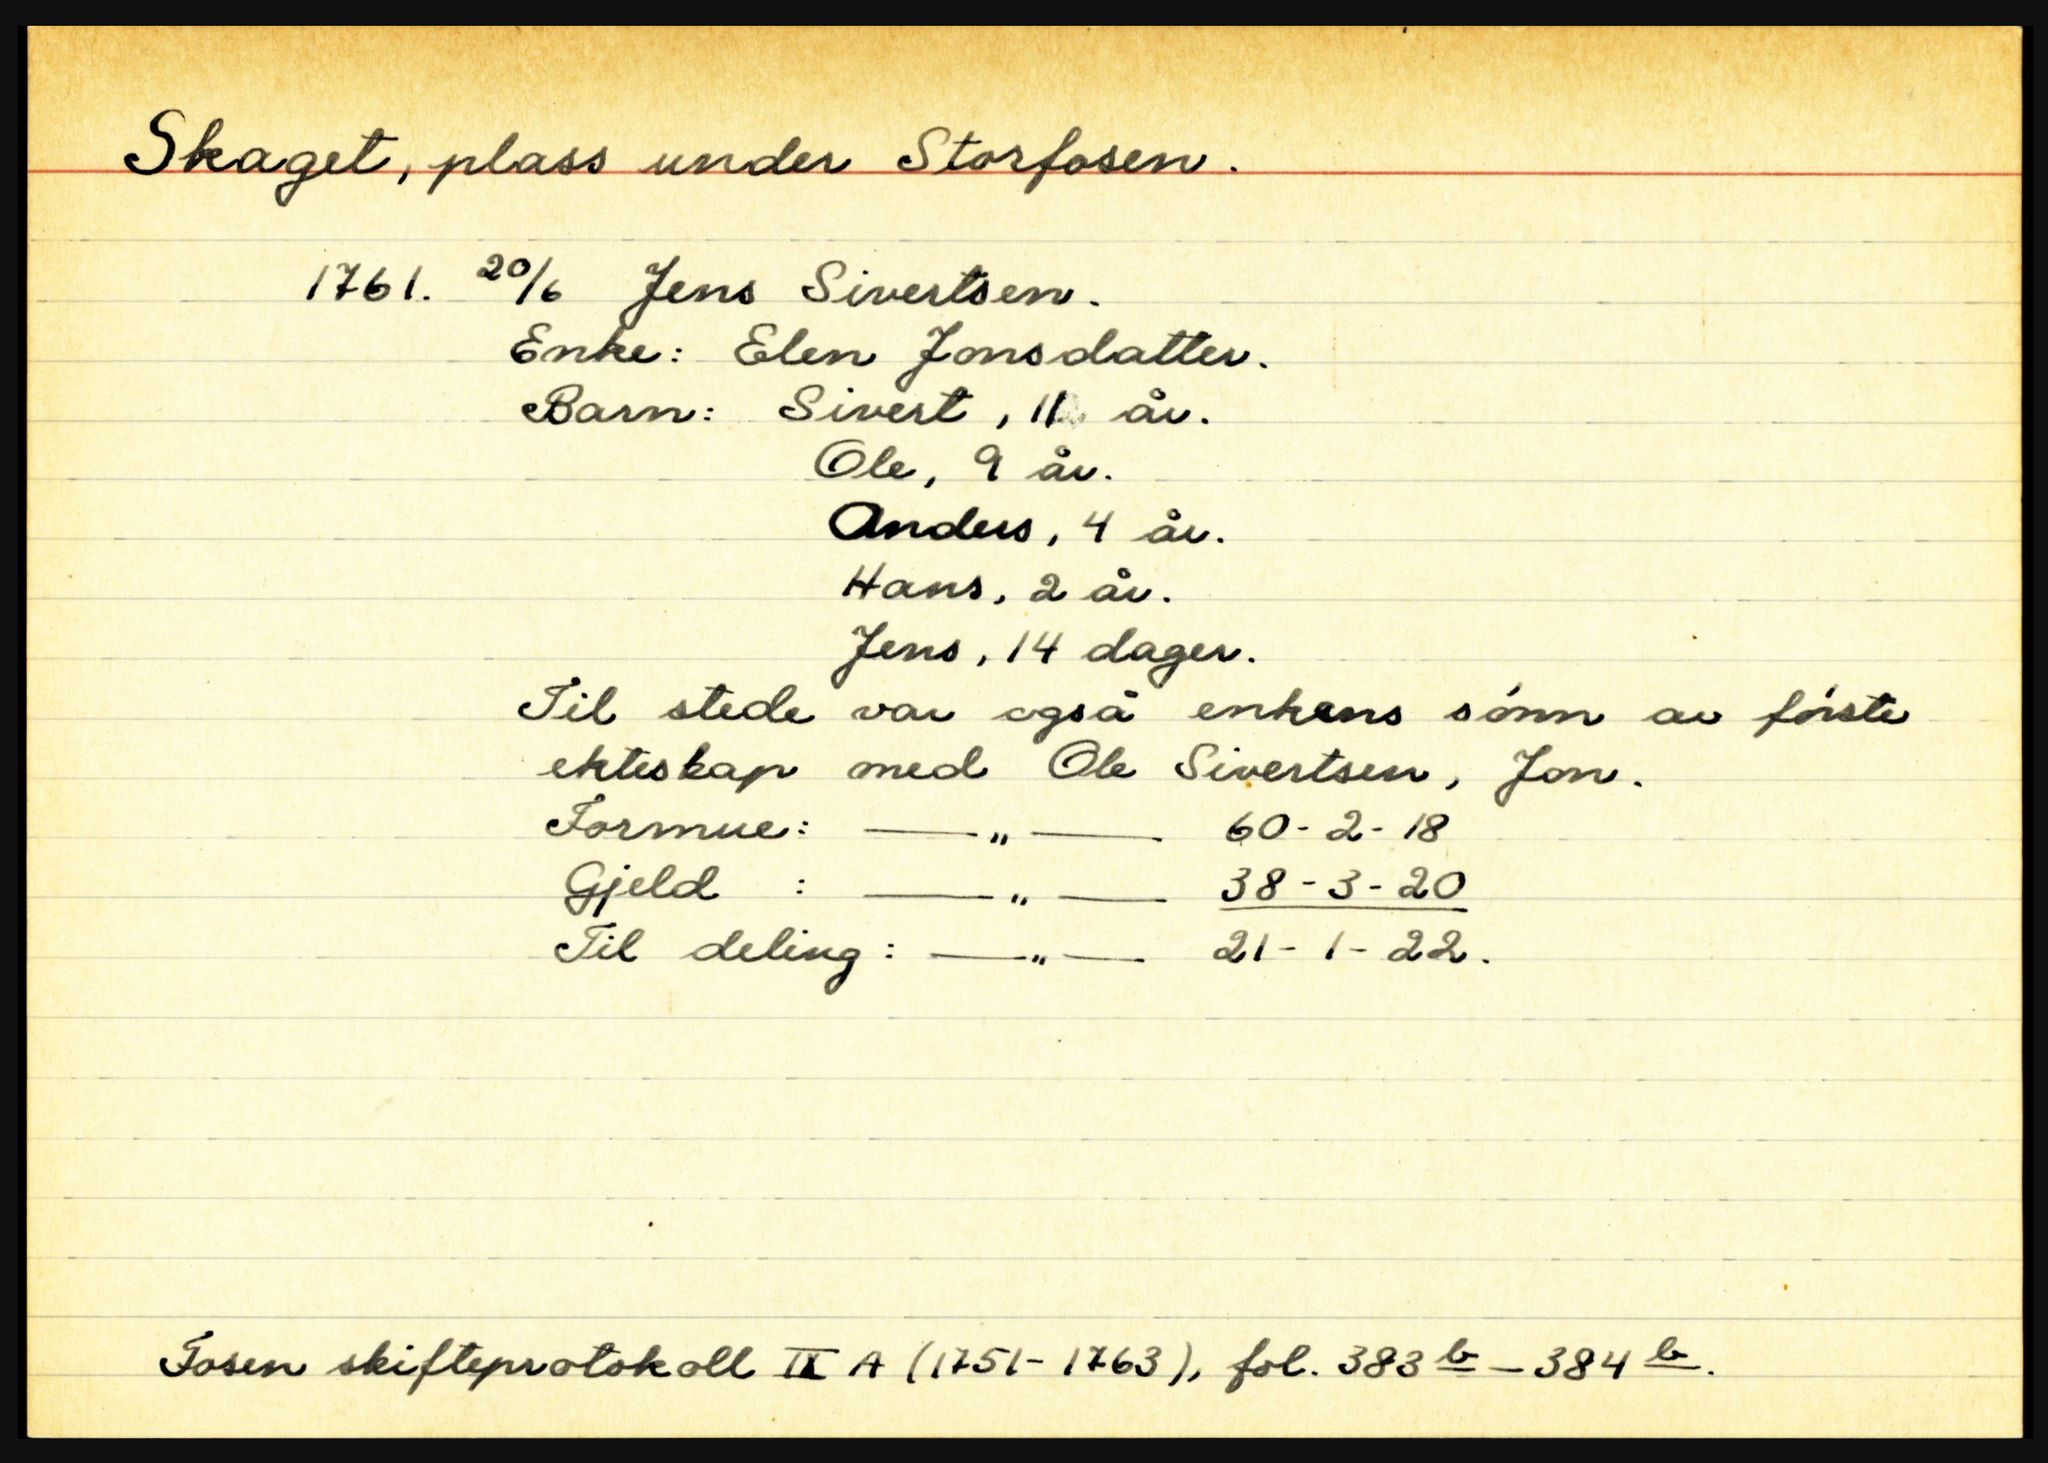 Skaget, plass under Storfosen.
1761. 20/6 Jens Sivertsen.
Enke: Elen Jonsdatter.
Barn: Sivert, 11 år.
Ole, 9 år.
Anders, 4 år.
Hans, 2 år.
Jens, 14 dager.
Til stede var også enkens sónn av fórste
ekteskap med Ole Sivertsen, Jon.
Formue: —„— 60-2-18
Gjeld : —„— 38-3-20
Til deling: —„— 21-1-22.
Fosen skifteprotokoll II A (1751-1763), fol. 383 b – 384 b.